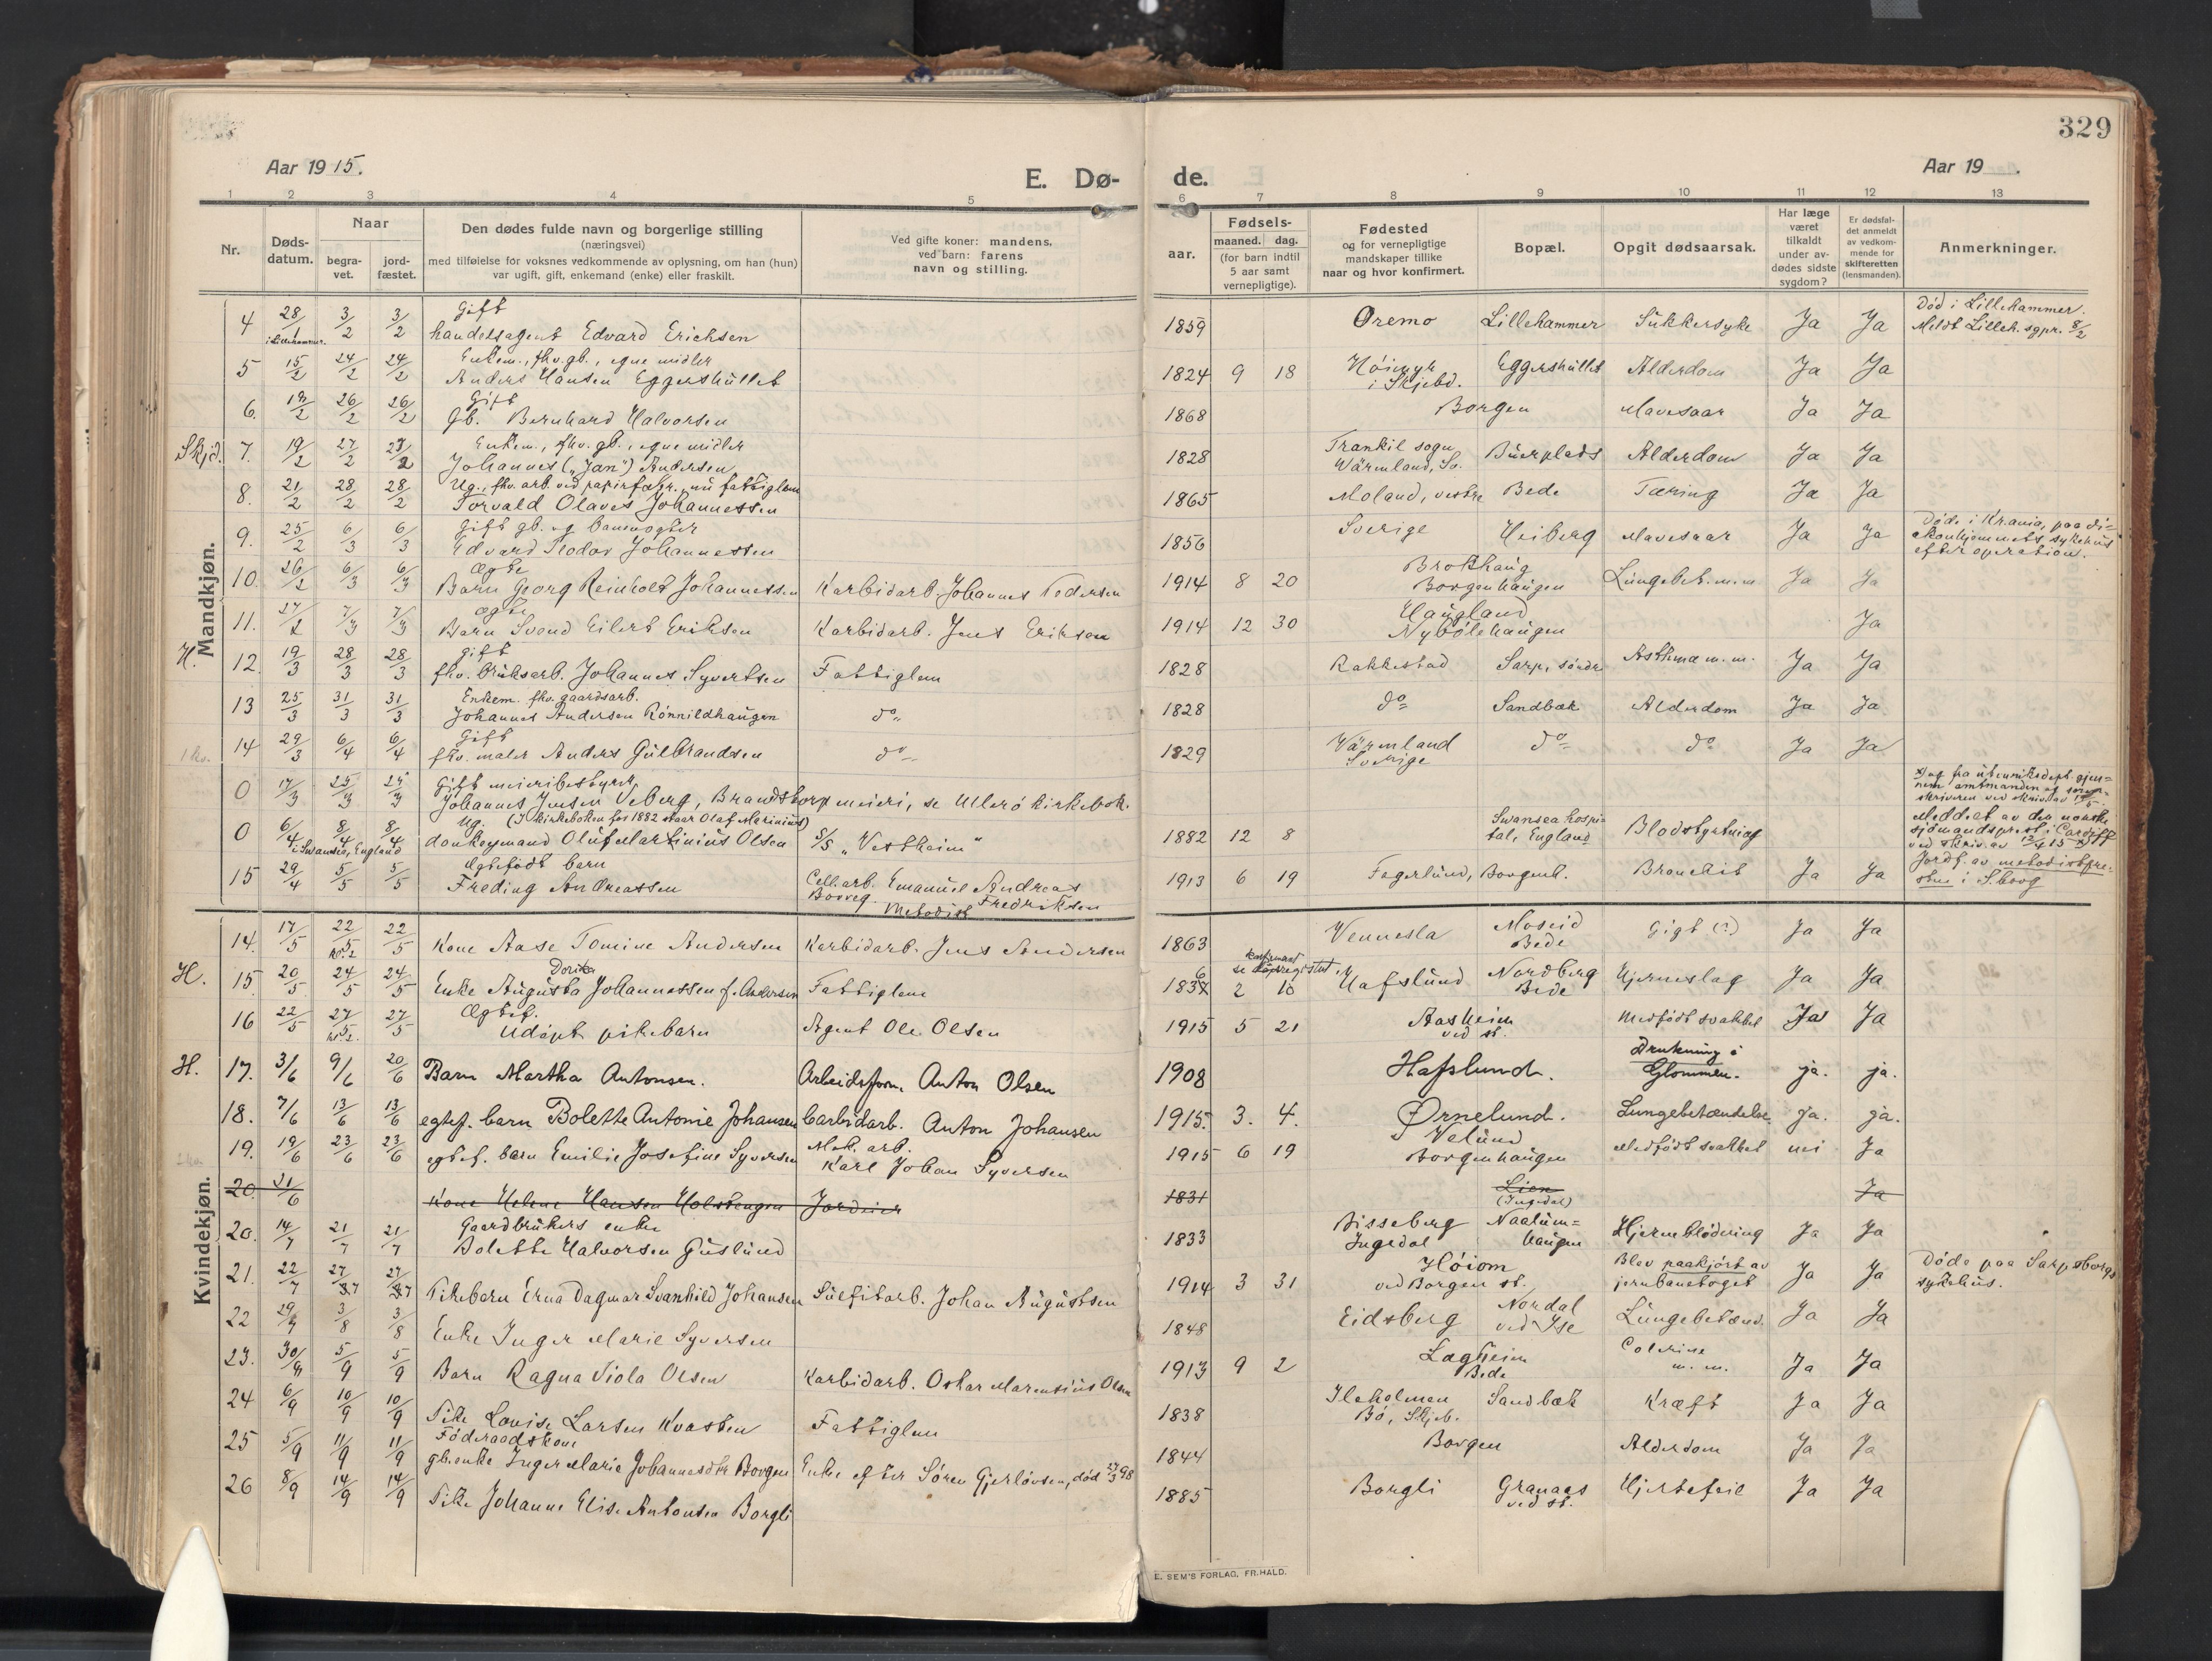 329
Aar 1915.
E. Dø-
de.
Aar 19 .
1 2 3 4 5 6 7 8 9 10 11 12 13
Nr.
Døds-
datum.
Naar
begra-
vet.
jord-
fæstet.
Den dødes fulde navn og borgerlige stilling
(næringsvei)
med tilføielse for voksnes vedkommende av oplysning, om han (hun)
var ugift, gift, enkemand (enke) eller fraskilt.
Ved gifte koner: mandens,
ved barn: farens
navn og stilling.
Fødsels-
aar.
maaned. dag.
(for barn indtil
5 aar samt
vernepligtige).
Fødested
og for vernepligtige
mandskaper tillike
naar og hvor konfirmert.
Bopæl.
Opgit dødsaarsak.
Har læge
været
tilkaldt
under av-
dødes sidste
sygdom?
Er dødsfal-
det anmeldt
av vedkom-
mende for
skifteretten
(lensmanden).
Anmerkninger.
Mandkjøn.
Gift Død i Lillehammer.
4 28/1 3/2 3/2 handelsagent Edvard Erichsen 1859 Oremo Lillehammer Sukkersyke Ja Ja Meldt Lilleh. sgpr. 8/2
i Lillehammer.
Enkem., fhv. gb., egne midler
5 15/2 24/2 24/2 Anders Hansen Eggershullet 1824 9 18 Høimyr i Skjebd. Eggershullet Alderdom Ja Ja
Gift
6. 19/2 26/2 26/2 Gb. Bernhard Halvorsen 1868 Borgen Mavesaar Ja Ja
Enkem., fhv. gb., egne midler Trankil sogn
Skjd. 7. 19/2 27/2 27/2 Johannes („Jan") Andersen 1828 Wärmland, Sv. Buerplads Alderdom Ja Ja
Ug., fhv. arb. ved papirfabr., nu fattiglem
8. 21/2 28/2 28/2 Torvald Olaves Johannessen 1865 Moland, vestre Bede Tæring Ja Ja
Gift gb. og banevogter Døde i Kr.ania, paa di-
9. 25/2 6/3 6/3 Edvard Teodor Johannessen 1856 Sverige Heiberg Mavesaar Ja Ja akonhjemmets sykehus
efter operation.
Ægte Brokhaug
10. 26/2 6/3 6/3 Barn Georg Reinholt Johannessen Karbidarb. Johannes Pedersen 1914 8 20 Borgenhaugen Lungebet. m.m Ja Ja
ægte Haugland
11. 27/2 7/3 7/3 Barn Svend Eilert Eriksen Karbidarb. Jens Eriksen 1914 12 30 Nybølehaugen Ja
gift
H. 12. 19/3 28/3 28/3 fhv. bruksarb. Johannes Syvertsen Fattiglem 1828 Rakkestad Sarp, søndre Asthma m.m. Ja Ja
Enkem. fhv. gaardsarb.
13 25/3 31/3 31/3 Johannes Andersen Rønnildhaugen do 1828 do Sandbæk Alderdom Ja Ja
Gift
14 29/3 6/4 6/4 fhv. maler Anders Gulbrandsen do 1829 Värmland Sverige do do Ja Ja
Gift meieribestyrer
0 17/3 25/3 25/3 Johannes Jensen Veberg, Brandstorp meieri, se Ullerø kirkebok.
Ug. (I kirkeboken for 1882 staar Olaf Marinius)
0 6/4 8/4 8/4 donkeymand Oluf Martinius Olsen S/S „Vestheim" 1882 12 8 Swansea hospi-tal, England Blodstyrtning
i Swansea, England
Meddelt av den norske
sjømandsprest i Cardiff
ved skriv. av 12/4 15
Ægtefødt barn
15 29/4 5/5 5/5 Freding Andreassen Cell. arb. Emanuel Andreas Fredriksen 1913 6 19 Fagerlund, Borgenh. Bronchit Ja Ja Jordf. av metodistpre-
Borreg. Metodist sten i S.borg
Kvindekjøn.
14. 17/5 22/5 22/5 Kone Aase Tomine Andersen Karbidarb. Jens Andersen 1863 Vennesla Moseid Bede Gigt (?) Ja Ja
kl. 2
Dorika
H. 15. 20/5 24/5 24/5 Enke Augusta Johannessen f. Andersen Fattiglem 1837 2 10 Hafslund Nordberg Bede Hjerneslag Ja Ja
Ægtef.
16 22/5 27/5 27/5 Udøpt pikebarn Agent Ole Olsen 1915 5 21 Aasheim ved st. Medfødt svakhet Ja Ja
kl. 2.
H. 17. 3/6 9/6 20/6 Barn Martha Antonsen. Arbeidsform. Anton Olsen 1908 Hafslund. Drukning i Glommen. ja. ja.
18. 7/6 13/6 13/6 egtef. barn Bolette Antonie Johansen Carbidarb. Anton Johansen 1915. 3. 4. Ørnelund. Lungebetændelse. ja. ja.
19. 19/6 23/6 23/6 egtef. barn Emilie Josefine Syversen Mek. arb. Karl Johan Syversen 1915 6 19 Velund Borgenhaugen Medfødt svakhet nei Ja
20. 21/6 Kone Helene Hansen Holstengen Jordeier 1831 Lien (Ingedal) Ja
Gaardbrukers enke
20. 14/7 21/7 21/7 Bolette Halvorsen Guslund 1833 Bisseberg Ingedal Naalum-haugen Hjerneblødning Ja Ja
21. 22/7 27/7 27/7 Pikebarn Erna Dagmar Svanhild Johansen Sulfitarb. Johan Augustsen 1914 3 31 Høiom ved Borgen st. Blev paakjørt av jernbanetoget Ja Ja Døde paa Sarpsborgs sykehus.
22 29/7 3/8 3/8 Enke Inger Marie Syversen 1848 Eidsberg Nordal ved Ise Lungebetænd. Ja Ja
23. 30/8 5/9 5/9 Barn Ragna Viola Olsen Karbidarb. Oskar Marensius Olsen 1913 9 2 Lagheim Bede Colerine m. m. Ja Ja
24 6/9 10/9 10/9 Pike Lovise Larsen Kvasten Fattiglem 1838 Ileholmen Bø, Skjeb. Sandbæk Kræft Ja Ja
Føderaadskone
25 5/9 11/9 11/9 gb.enke Inger Marie Johannesdtr. Borgen Enke efter Søren Gjerløvsen, død 27/3 98 1844 Borgen Alderdom Ja Ja
26 8/9 14/9 14/9 Pike Johanne Elise Antonsen Borgli 1885 Borgli Granaas ved st. Hjertefeil Ja Ja
E. SEM'S FORLAG, FR.HALD.